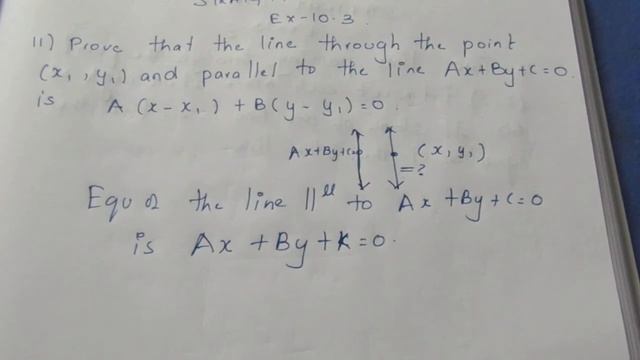 Ex-10.3
11) Prove that the line through the point
(x₁, y₁) and parallel to the line Ax+By+C=0.
is A(x-x₁) + B(y-y₁)=0.
Ax+By+C=0 (x₁ y₁)
=?
Equ of the line ||ˡˡ to Ax+By+C=0
is Ax+By+K=0.